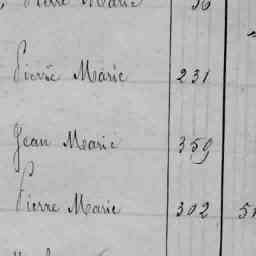 Pierre Marie 56
Pierre Marie 231
Jean Marie 359
Pierre Marie 302